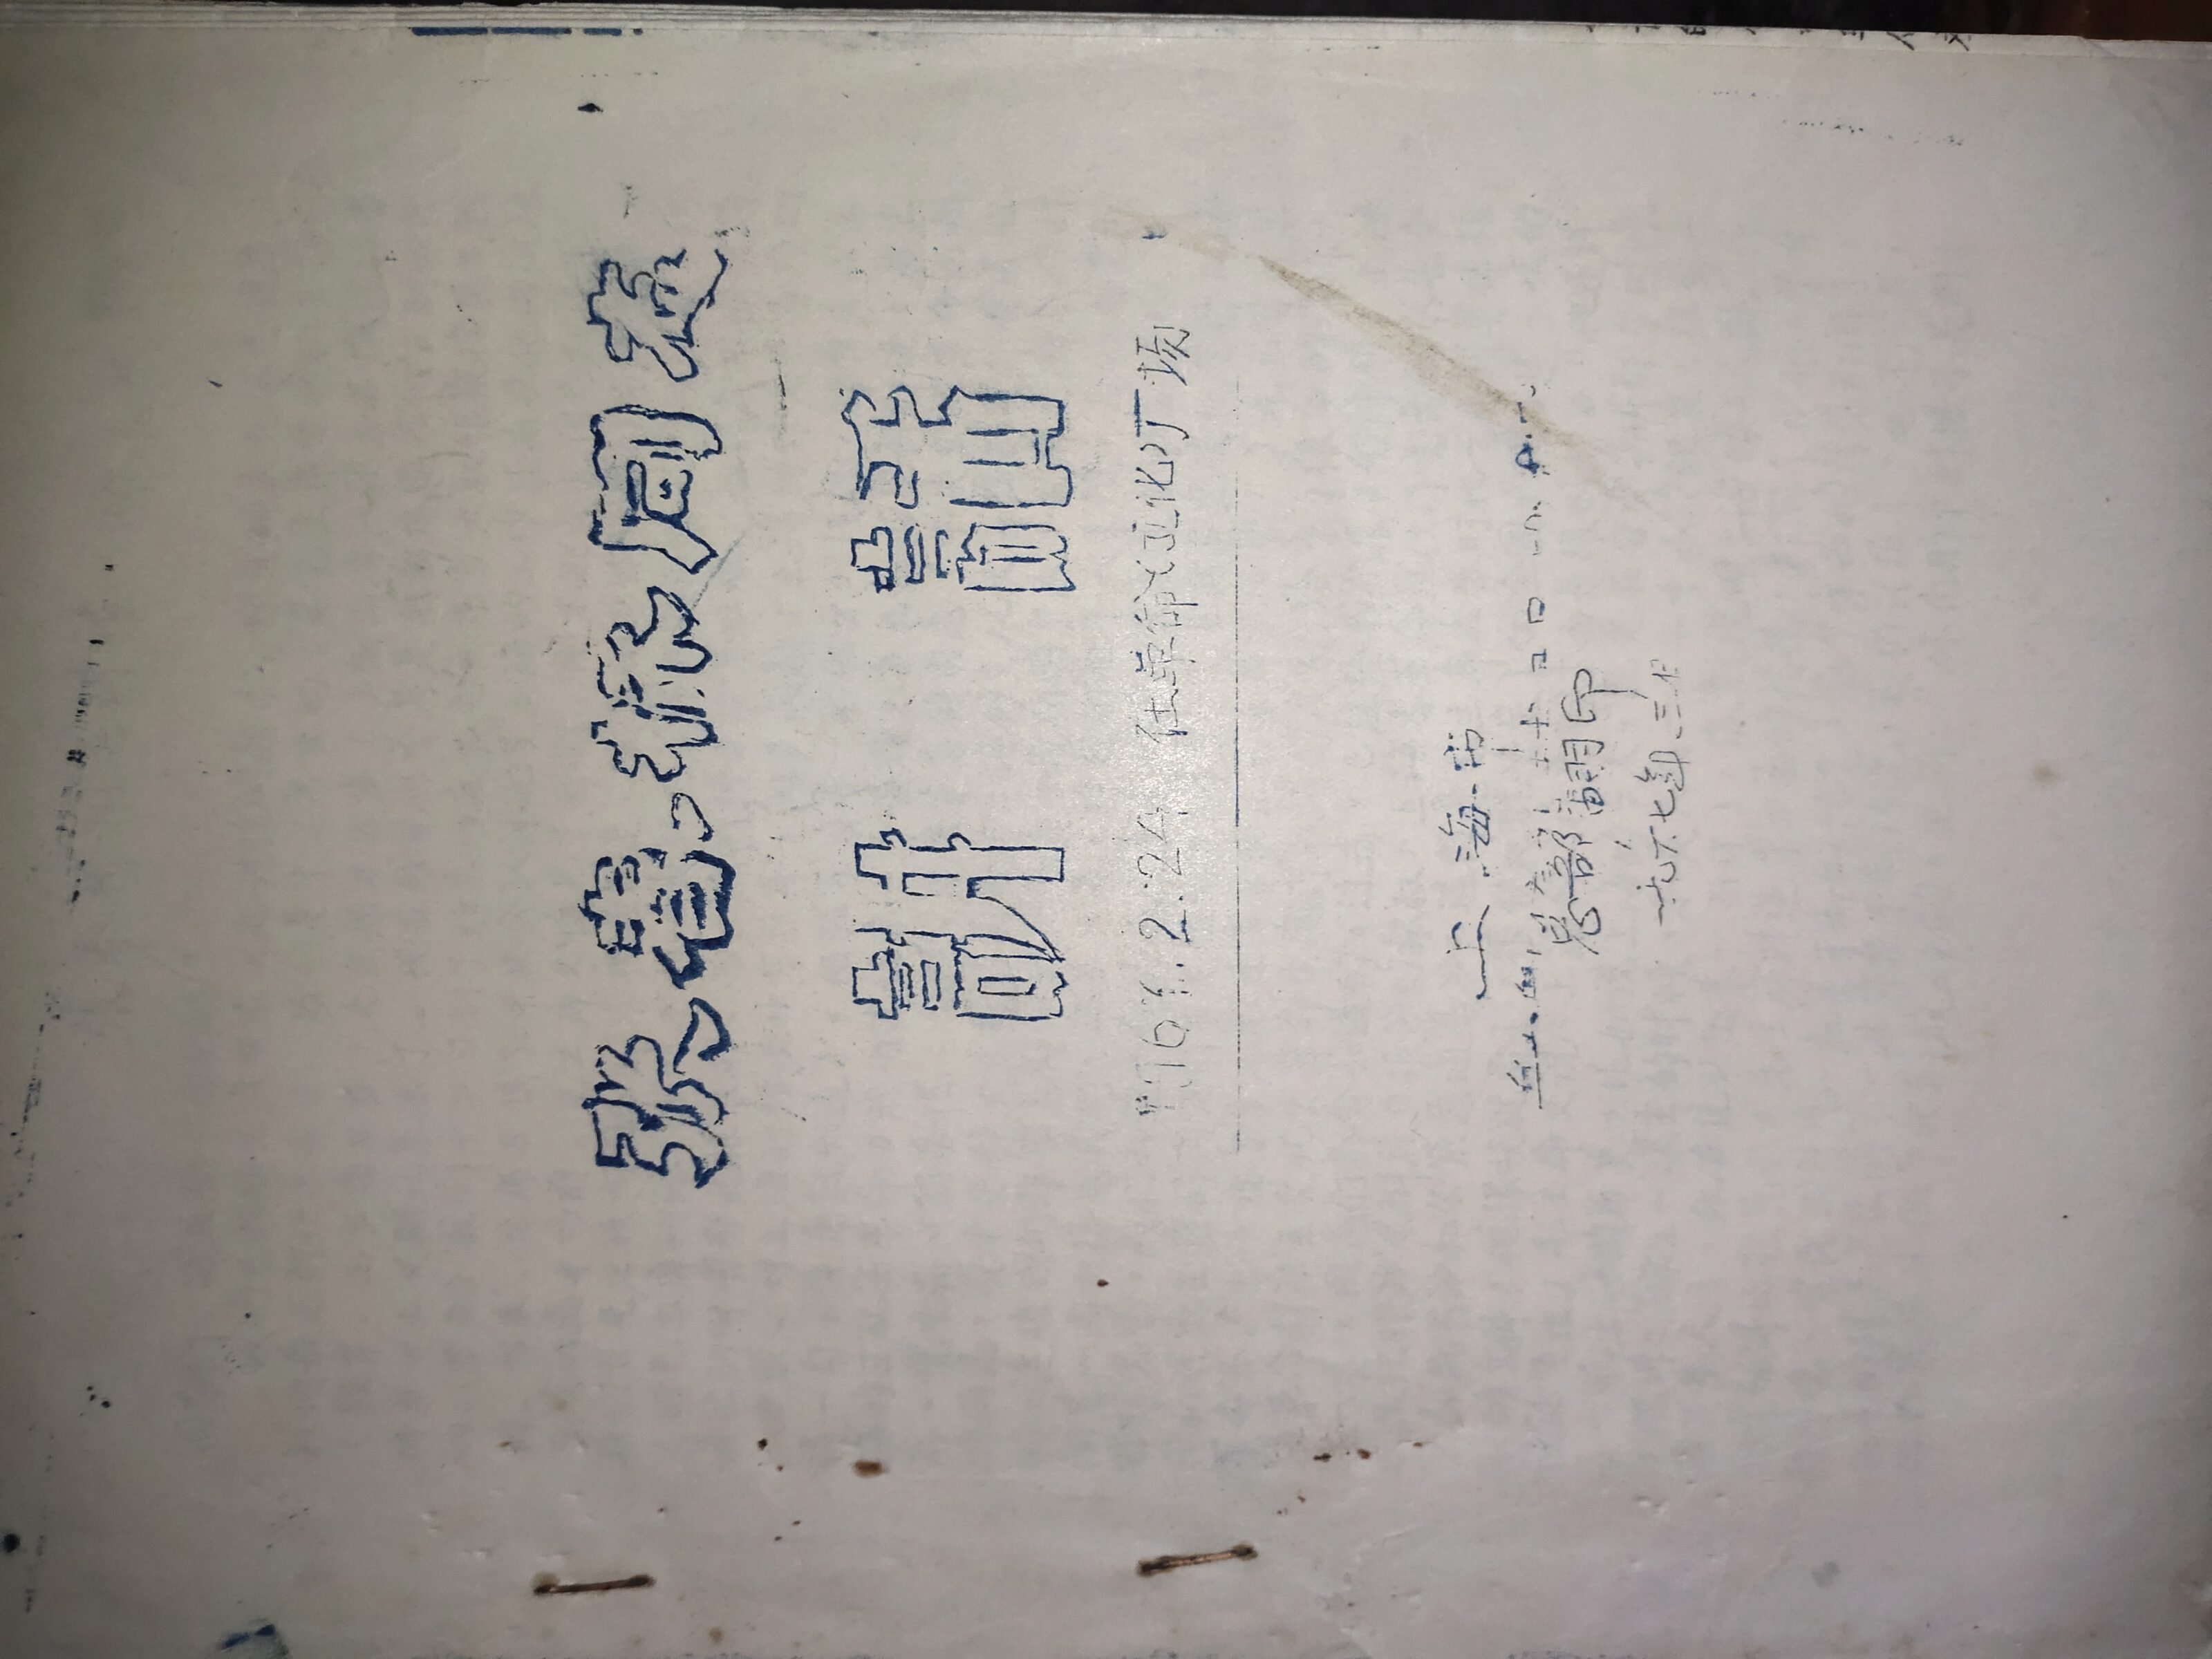 张春桥同志
讲 話
1967.2.24 在革命(文化)广场
上海市
总部翻印
一九六七年三月